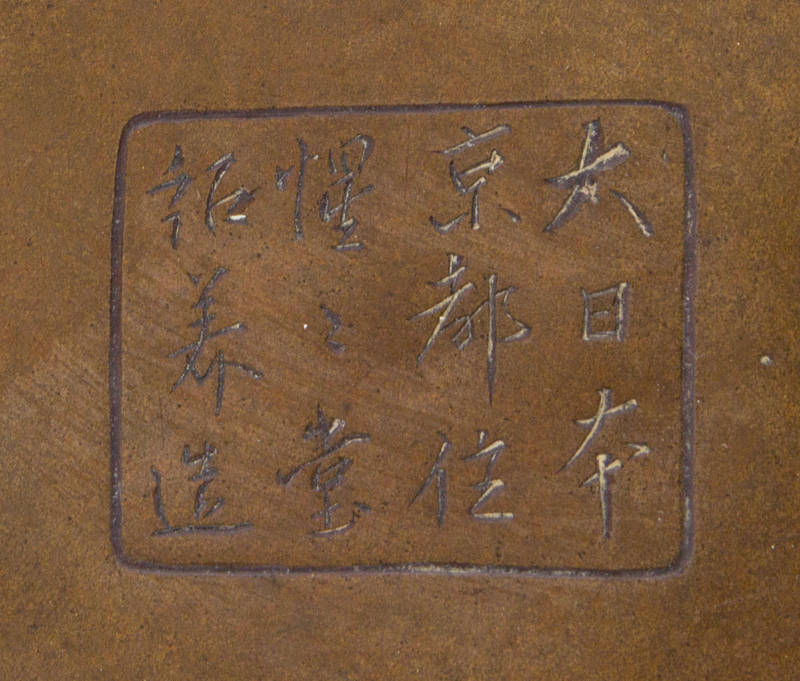 大日本
京都住
惺〻堂
紹美造